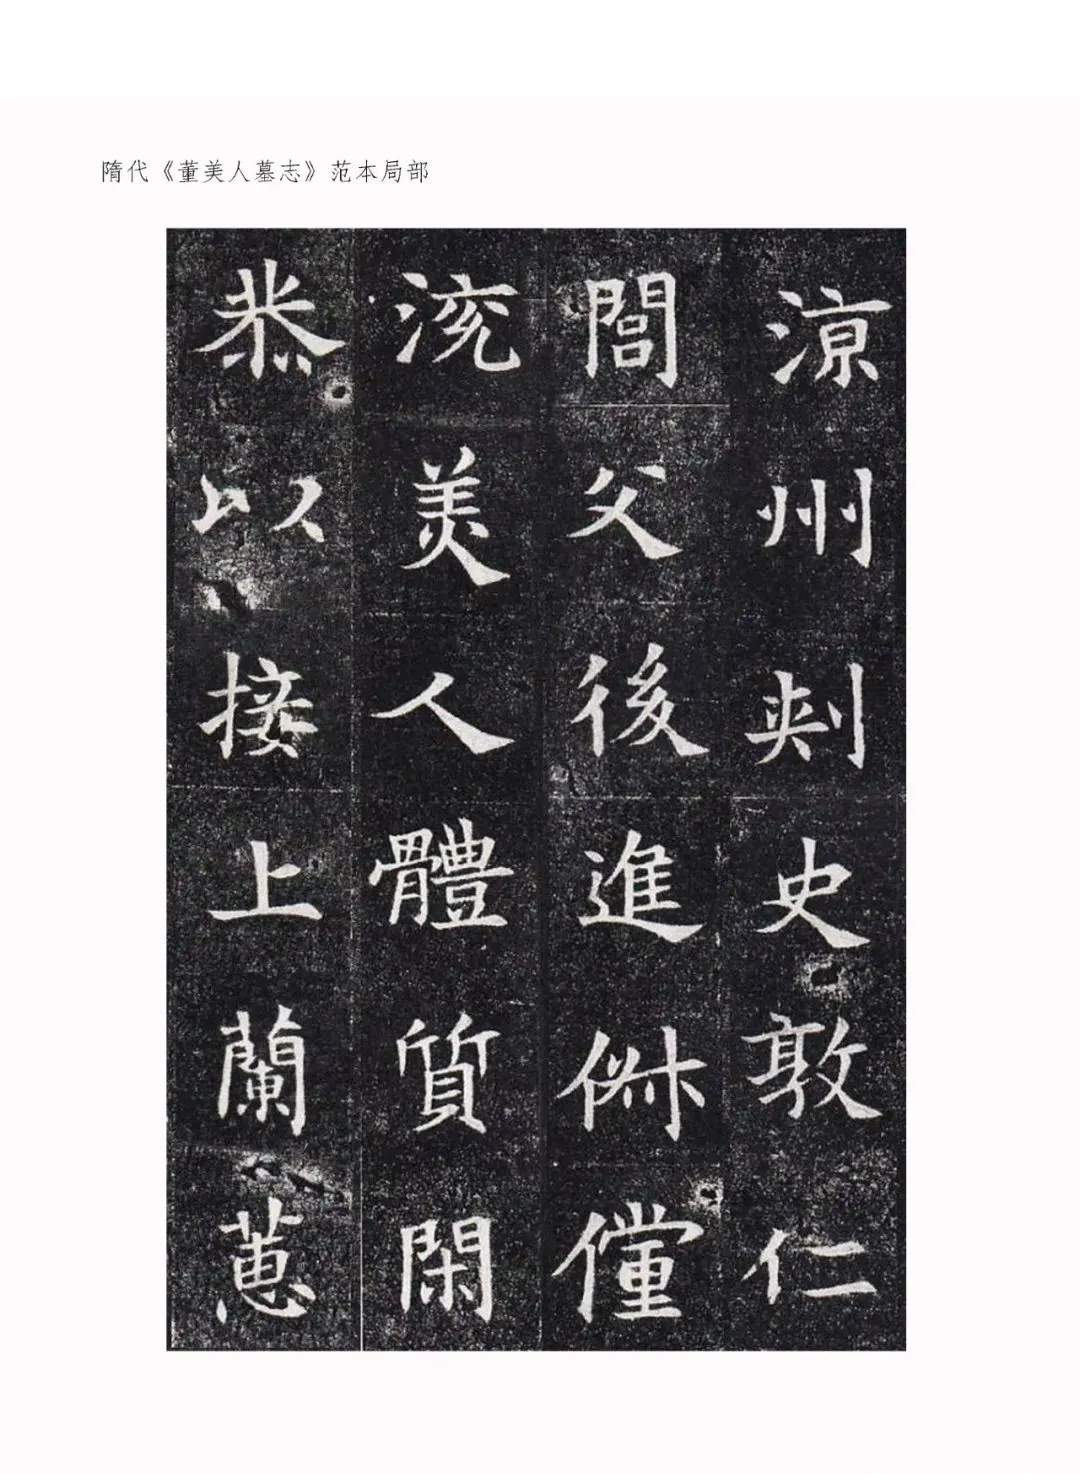 隋代《董美人墓志》范本局部
涼州刺史敦仁
閭父後進俶儻
渷美人體質閑
恭以接上蘭蕙